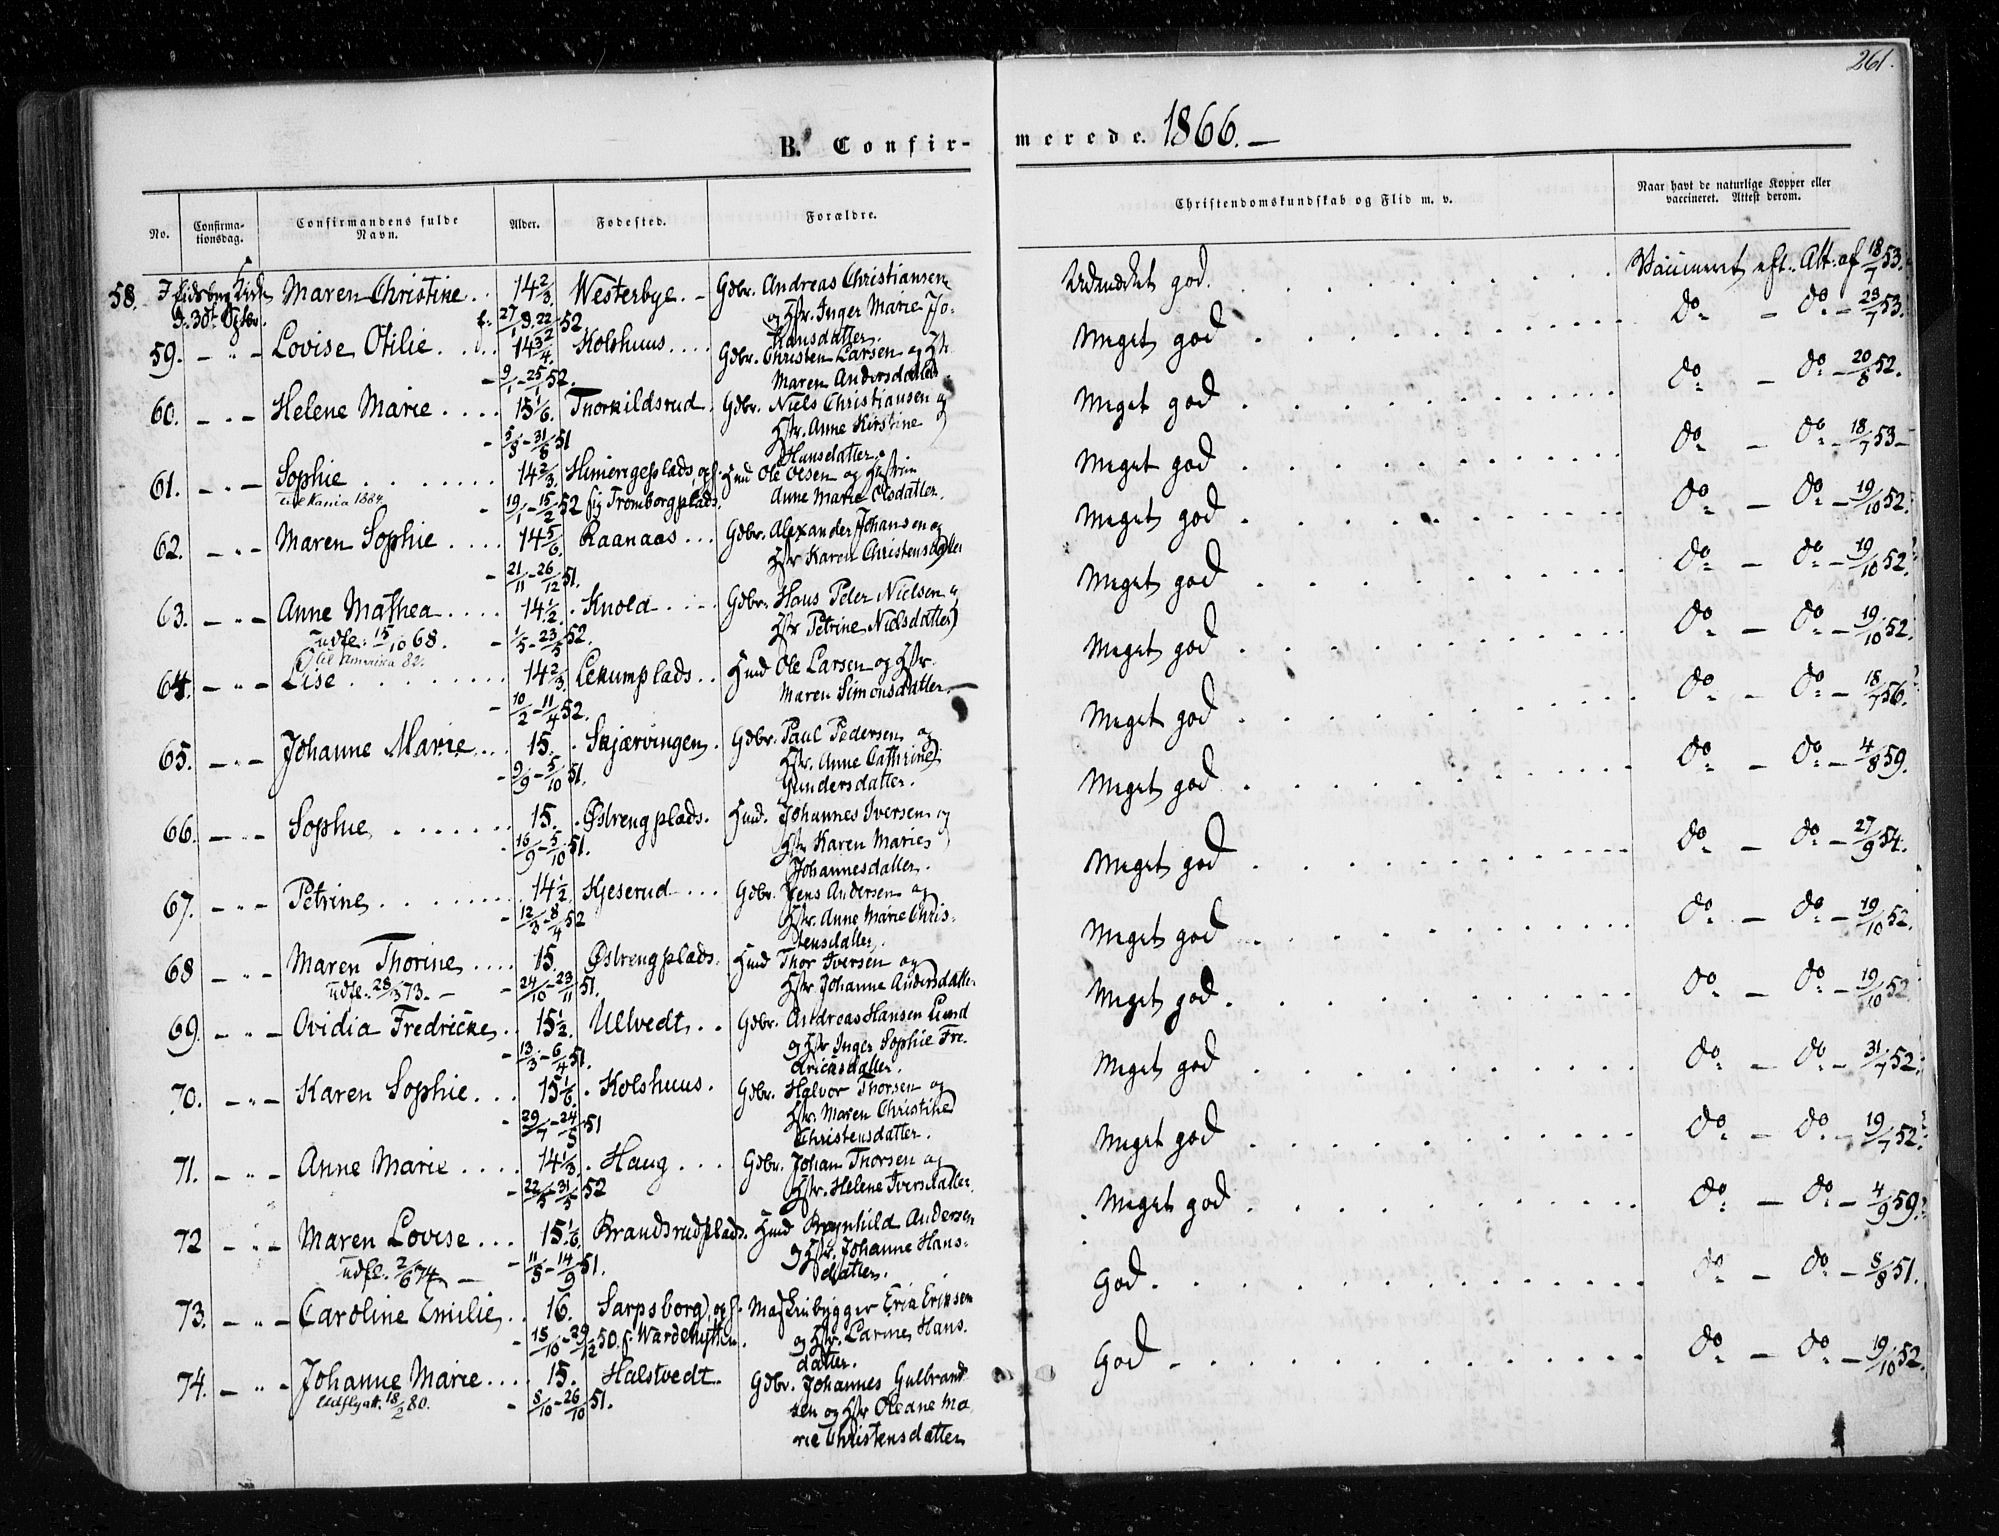 261.
B. Confir-
merede. 1866. —
No.
Confirma-
tionsdag.
Confirmandens fulde
Navn.
Alder.
Fødested.
Forældre.
Christendomskundskab og Flid m. v.
Naar havt de naturlige Kopper eller
vaccineret. Attest derom.
58. I Eidsberg Kirke Maren Christine . . 14 2/3. Westerbye. — Gdbr. Andreas Christiansen Udmærket god. Vaccineret eft. Att. af 18/7 53.
d. 30te Septbr. f. 27/8 22 52 og Hstr. Inger Marie Jo-
hansdatter.
59. — " — Lovise Otilie. . . 14 3/4. Kolshuus. . . . Gdbr. Christen Larsen og Hstr. Meget god do — do — 23/7 53.
— 9/1 — 25/1 52. Maren Andersdatter.
60. — " — Helene Marie . . . . 15 1/6. Thorkildsrud. Gdbr. Niels Christiansen og Meget god do — do — 20/8 52.
— 5/8 — 31/8 51 Hstr. Anne Kirstine
Hansdatter.
61. — " — Sophie . . . . . . 14 2/3. Hmd Ole Olsen og Hustrue Meget god do — do — 18/7 53 —
til Kania 1884. — 19/1 — 15/2 52 Tromborgplads. Anne Marie Olsdatter.
62. — " — Maren Sophie . . . . 14 5/6. Raanaas . . . Gdbr. Alexander Johansen og Meget god do — do — 19/10 52.
— 21/11 — 26/12 51. Hstr Karen Christensdatter
63. — " — Anne Mathea . . . . 14 1/2. Knold . . . . Gdbr. Hans Peter Nielsen og Meget god do — do — 19/10 52.
Udfl. 15/10 68. — 1/5 — 23/5 52. Hstr Petrine Nielsdatter
til Amerika 82.
64. — " — Lise . . . . . . . 14 2/3. Lekumplads . . Hmd Ole Larsen og Hstr. Meget god do — do — 19/10 52.
— 10/2 — 11/4 52. Maren Simonsdatter. —
65. — " — Johanne Marie . . 15. Skjærvingen. Gdbr. Paul Pedersen og Meget god do — do — 18/7 56.
— 9/9 — 5/10 51. Hstr. Anne Cathrine
Gundersdatter.
66. — " — Sophie . . . . . . 15. Østrengplads. Hmd. Johannes Iversen og Meget god do — do — 4/8 59.
16/9 — 5/10 51. Hstr Karen Marie
Johannesdatter.
67. — " — Petrine . . . . . . 14 1/2. Kjeserud . . . Gdbr. Jens Andersen og Meget god do — do — 27/9 54.
— 12/3 — 8/4 52 Hstr. Anne Marie Chris-
tensdatter.
68 — " — Maren Thorine . . . . 15. Østrengplads. Hmd Thor Iversen og Meget god do — do — 19/10 52.
Udfl. 28/3 73. — — 24/10 — 23/11 51. Hstr Johanne Andersdatter
69. — " — Ovidia Fredricke . . 15 1/2. Ulvedt . . Gdbr. Andreas Hansen Lund Meget god do — do — 19/10 52
— 13/3 — 6/4 51. og Hstr Inger Sophie Fre-
dricksdatter.
70. — " — Karen Sophie . . . 15 1/6. Kolshuus. Gdbr. Halvor Thorsen og Meget god do — do — 31/7 52.
— 29/7 — 24/8 51 Hstr. Maren Christine
Christensdatter.
71. — " — Anne Marie . . . . 14 1/3. Haug . . . Gdbr. Johan Thorsen og Meget god do — do — 19/7 52.
— 22/5 — 31/5 52 Hstr. Helene Iversdatter.
72 — " — Maren Lovise . . . 15 1/6. Brandsrudplads. Hmd Brynhild Andersen Meget god do — do — 4/9 59.
Udfl. 2/6 74 — — 11/8 — 14/9 51. og Hstr. Johanne Hans-
datter.
73. — " — Caroline Emilie . . 16. Sarpsborg, og f. Maskinbygger Eric Eriksen God. do — do — 8/8 51.
— 15/10 — 29/12 50. og Hstr. Larine Hans-
datter.
74. — " — Johanne Marie . . . . 15. Halstvedt. Gdbr. Johannes Gulbrand- God do — do — 19/10 52.
Udflytt. 18/2 80. — 8/10 — 26/10 51. sen og Hstr Oleane Ma-
rie Christensdatter